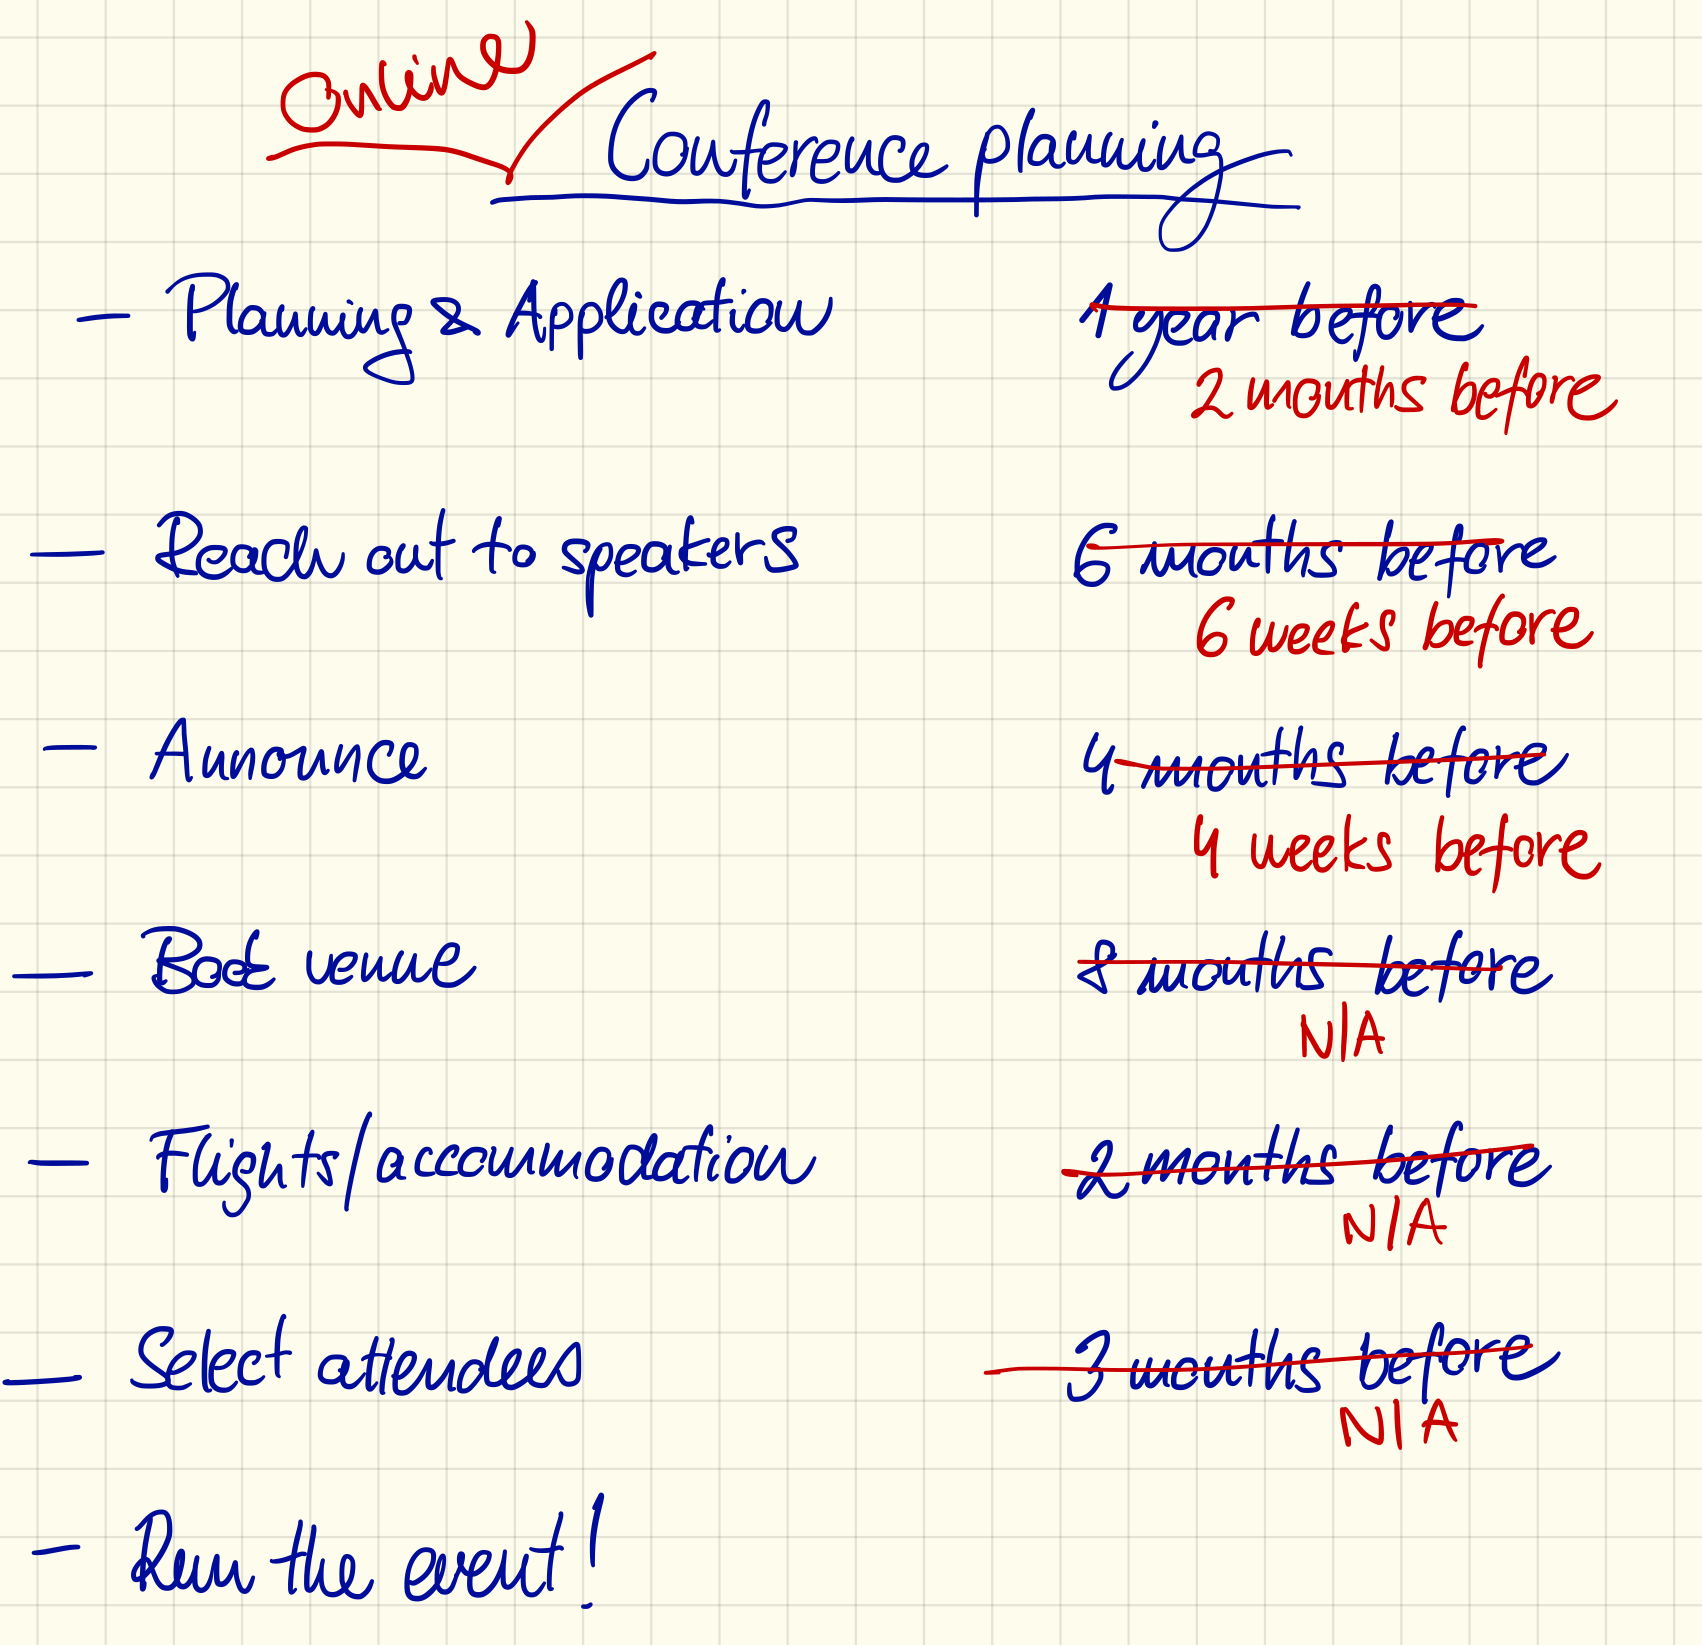 Online
Conference planning
- Planning & Application 1 year before
2 months before
- Reach out to speakers 6 months before
6 weeks before
- Announce 4 months before
4 weeks before
- Book venue 8 months before
N/A
- Flights/accommodation 2 months before
N/A
- Select attendees 3 months before
N/A
- Run the event!